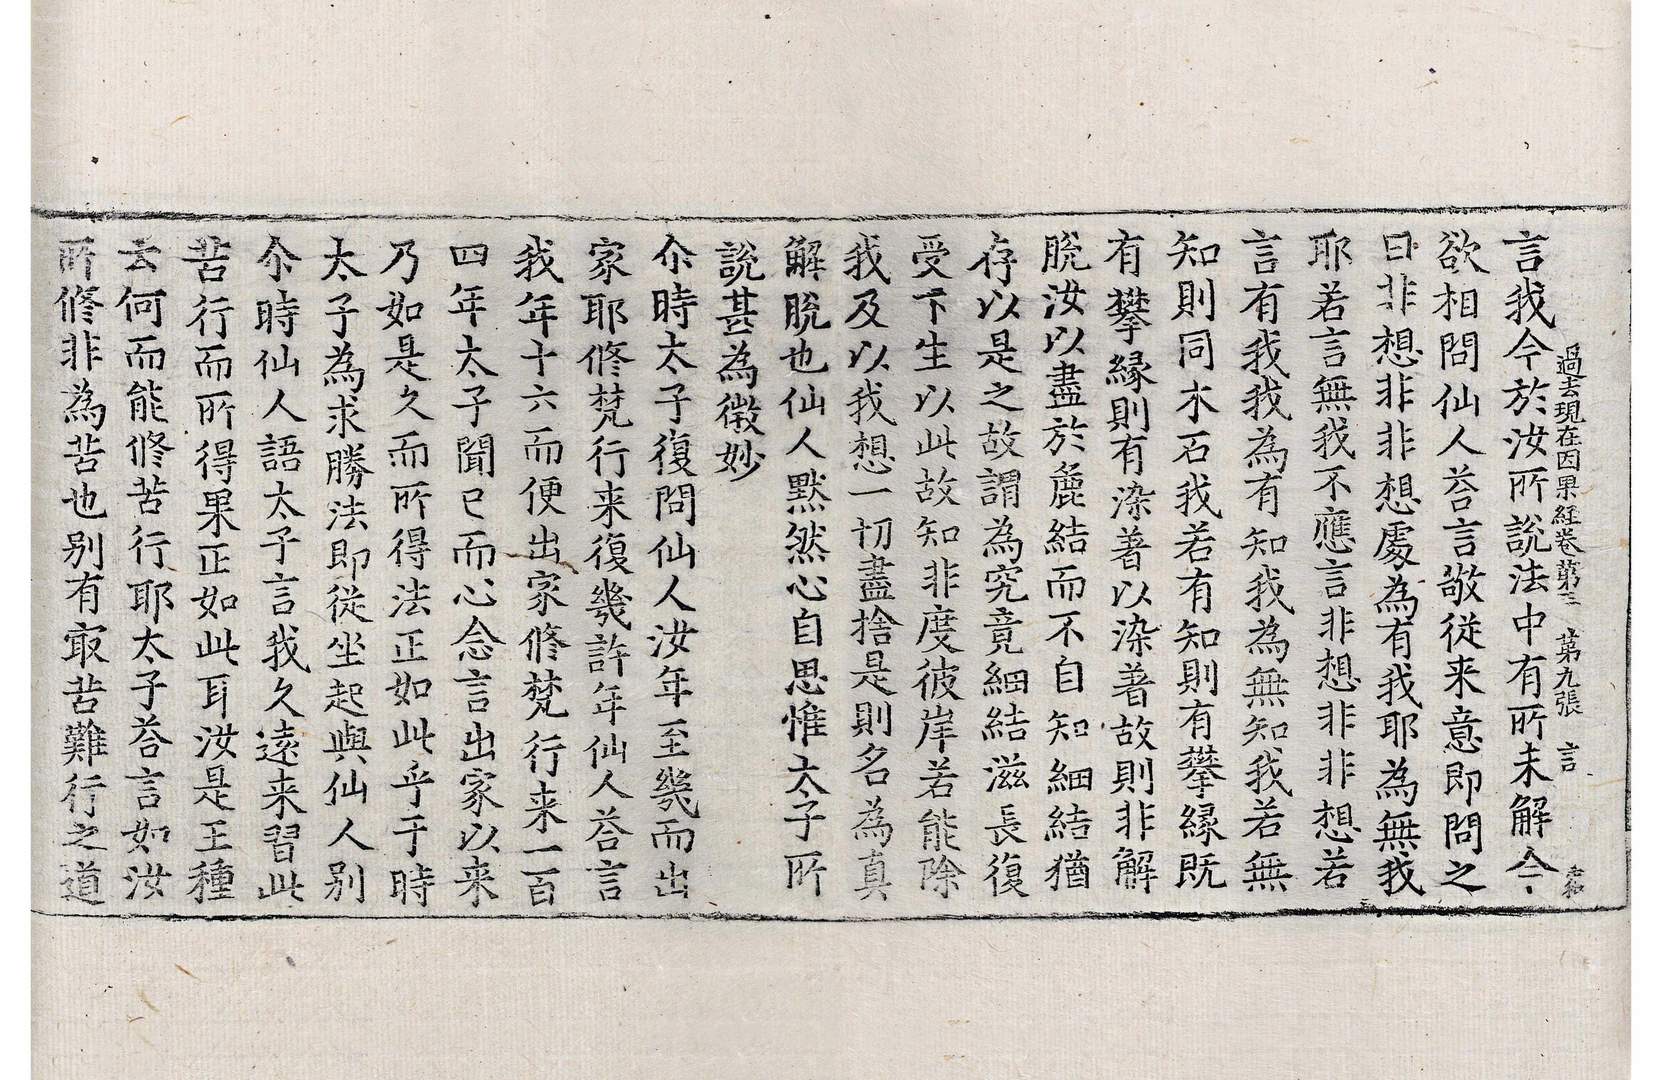 過去現在因果経卷第三　第九張　言
言我今於汝所說法中有所未解今
欲相問仙人荅言敬從来意即問之
曰非想非非想處為有我耶為無我
耶若言無我不應言非想非非想若
言有我我為有知我為無知我若無
知則同木石我若有知則有攀縁既
有攀縁則有染著以染著故則非解
脫汝以盡於麁結而不自知細結猶
存以是之故謂為究竟細結滋長復
受下生以此故知非度彼岸若能除
我及以我想一切盡捨是則名為真
解脫也仙人默然心自思惟太子所
說甚為微妙
尒時太子復問仙人汝年至幾而出
家耶修梵行来復幾許年仙人荅言
我年十六而便出家修梵行来一百
四年太子聞已而心念言出家以来
乃如是久而所得法正如此乎于時
太子為求勝法即從坐起與仙人別
尒時仙人語太子言我久遠来習此
苦行而所得果正如此耳汝是王種
云何而能修苦行耶太子荅言如汝
所修非為苦也別有㝡苦難行之道